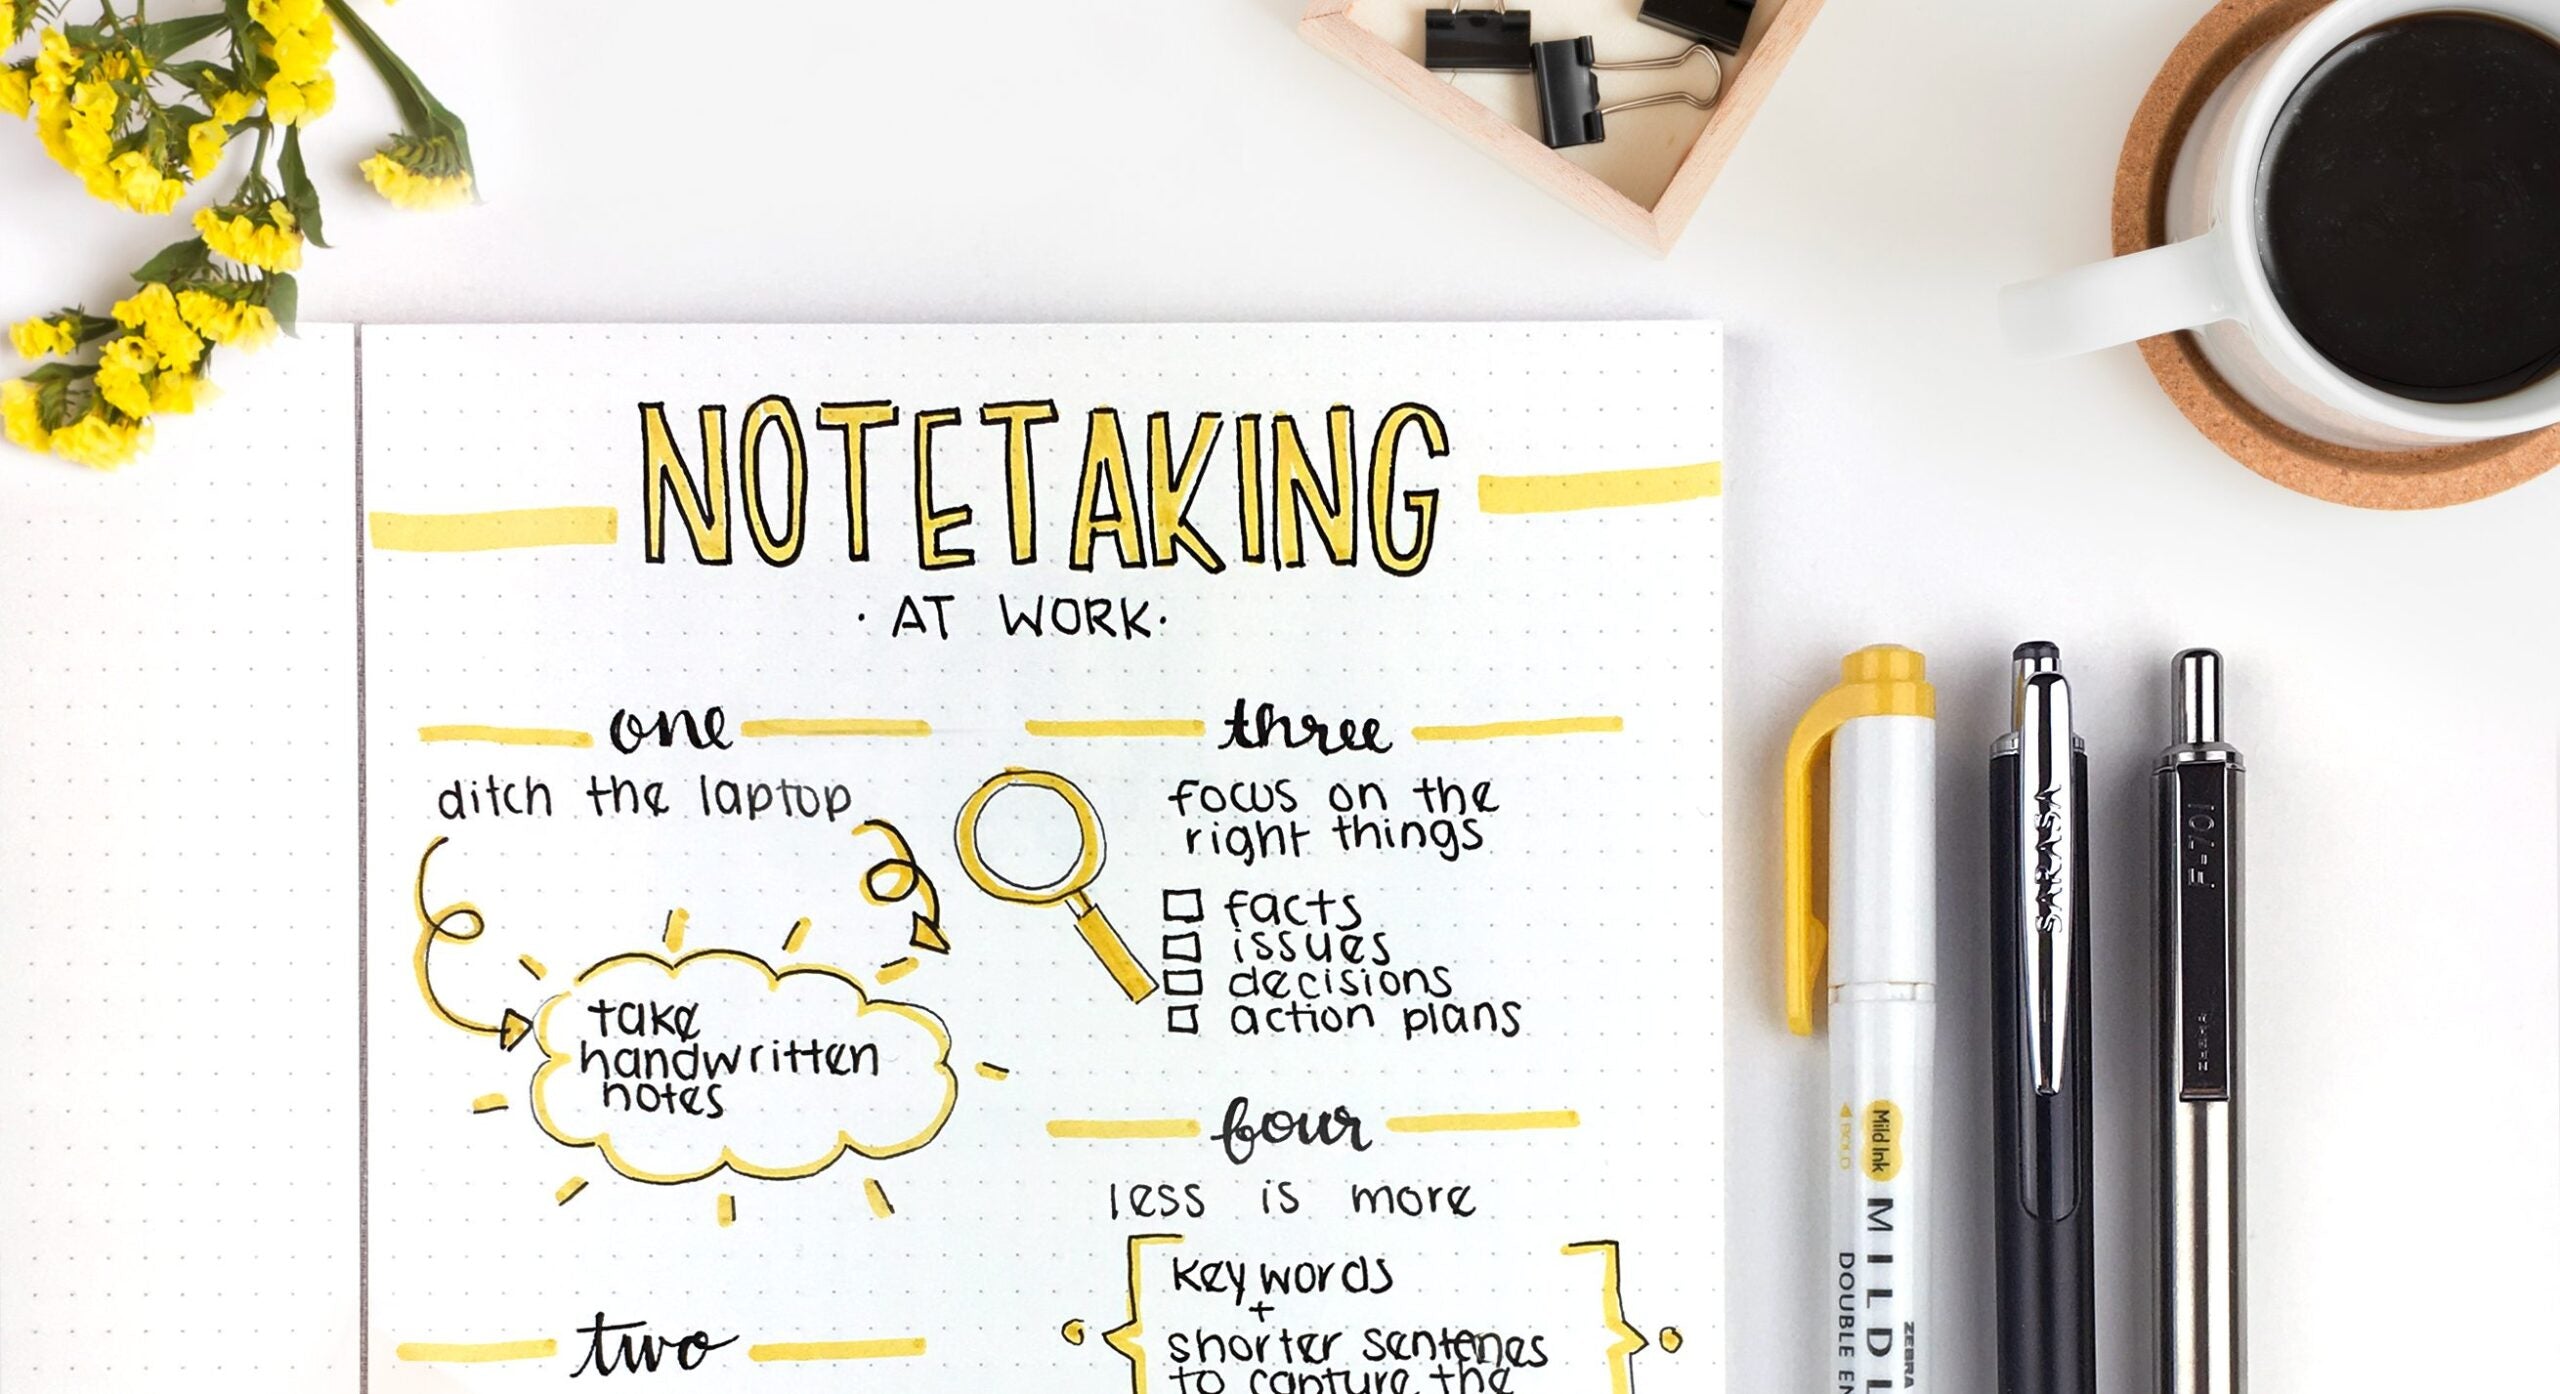 NOTETAKING
· AT WORK ·
one
ditch the laptop
take
handwritten
notes
two
three
focus on the
right things
facts
issues
decisions
action plans
four
less is more
key words
+
shorter sentenes
to capture the
SARASA
F-701
ZEBRA
Mild Ink
MILDL
DOUBLE EN